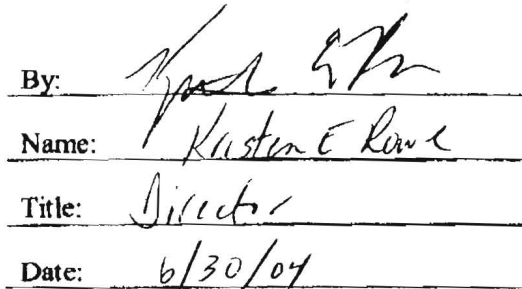 By:
Name: Kristen E Rowe
Title: Director
Date: 6/30/04